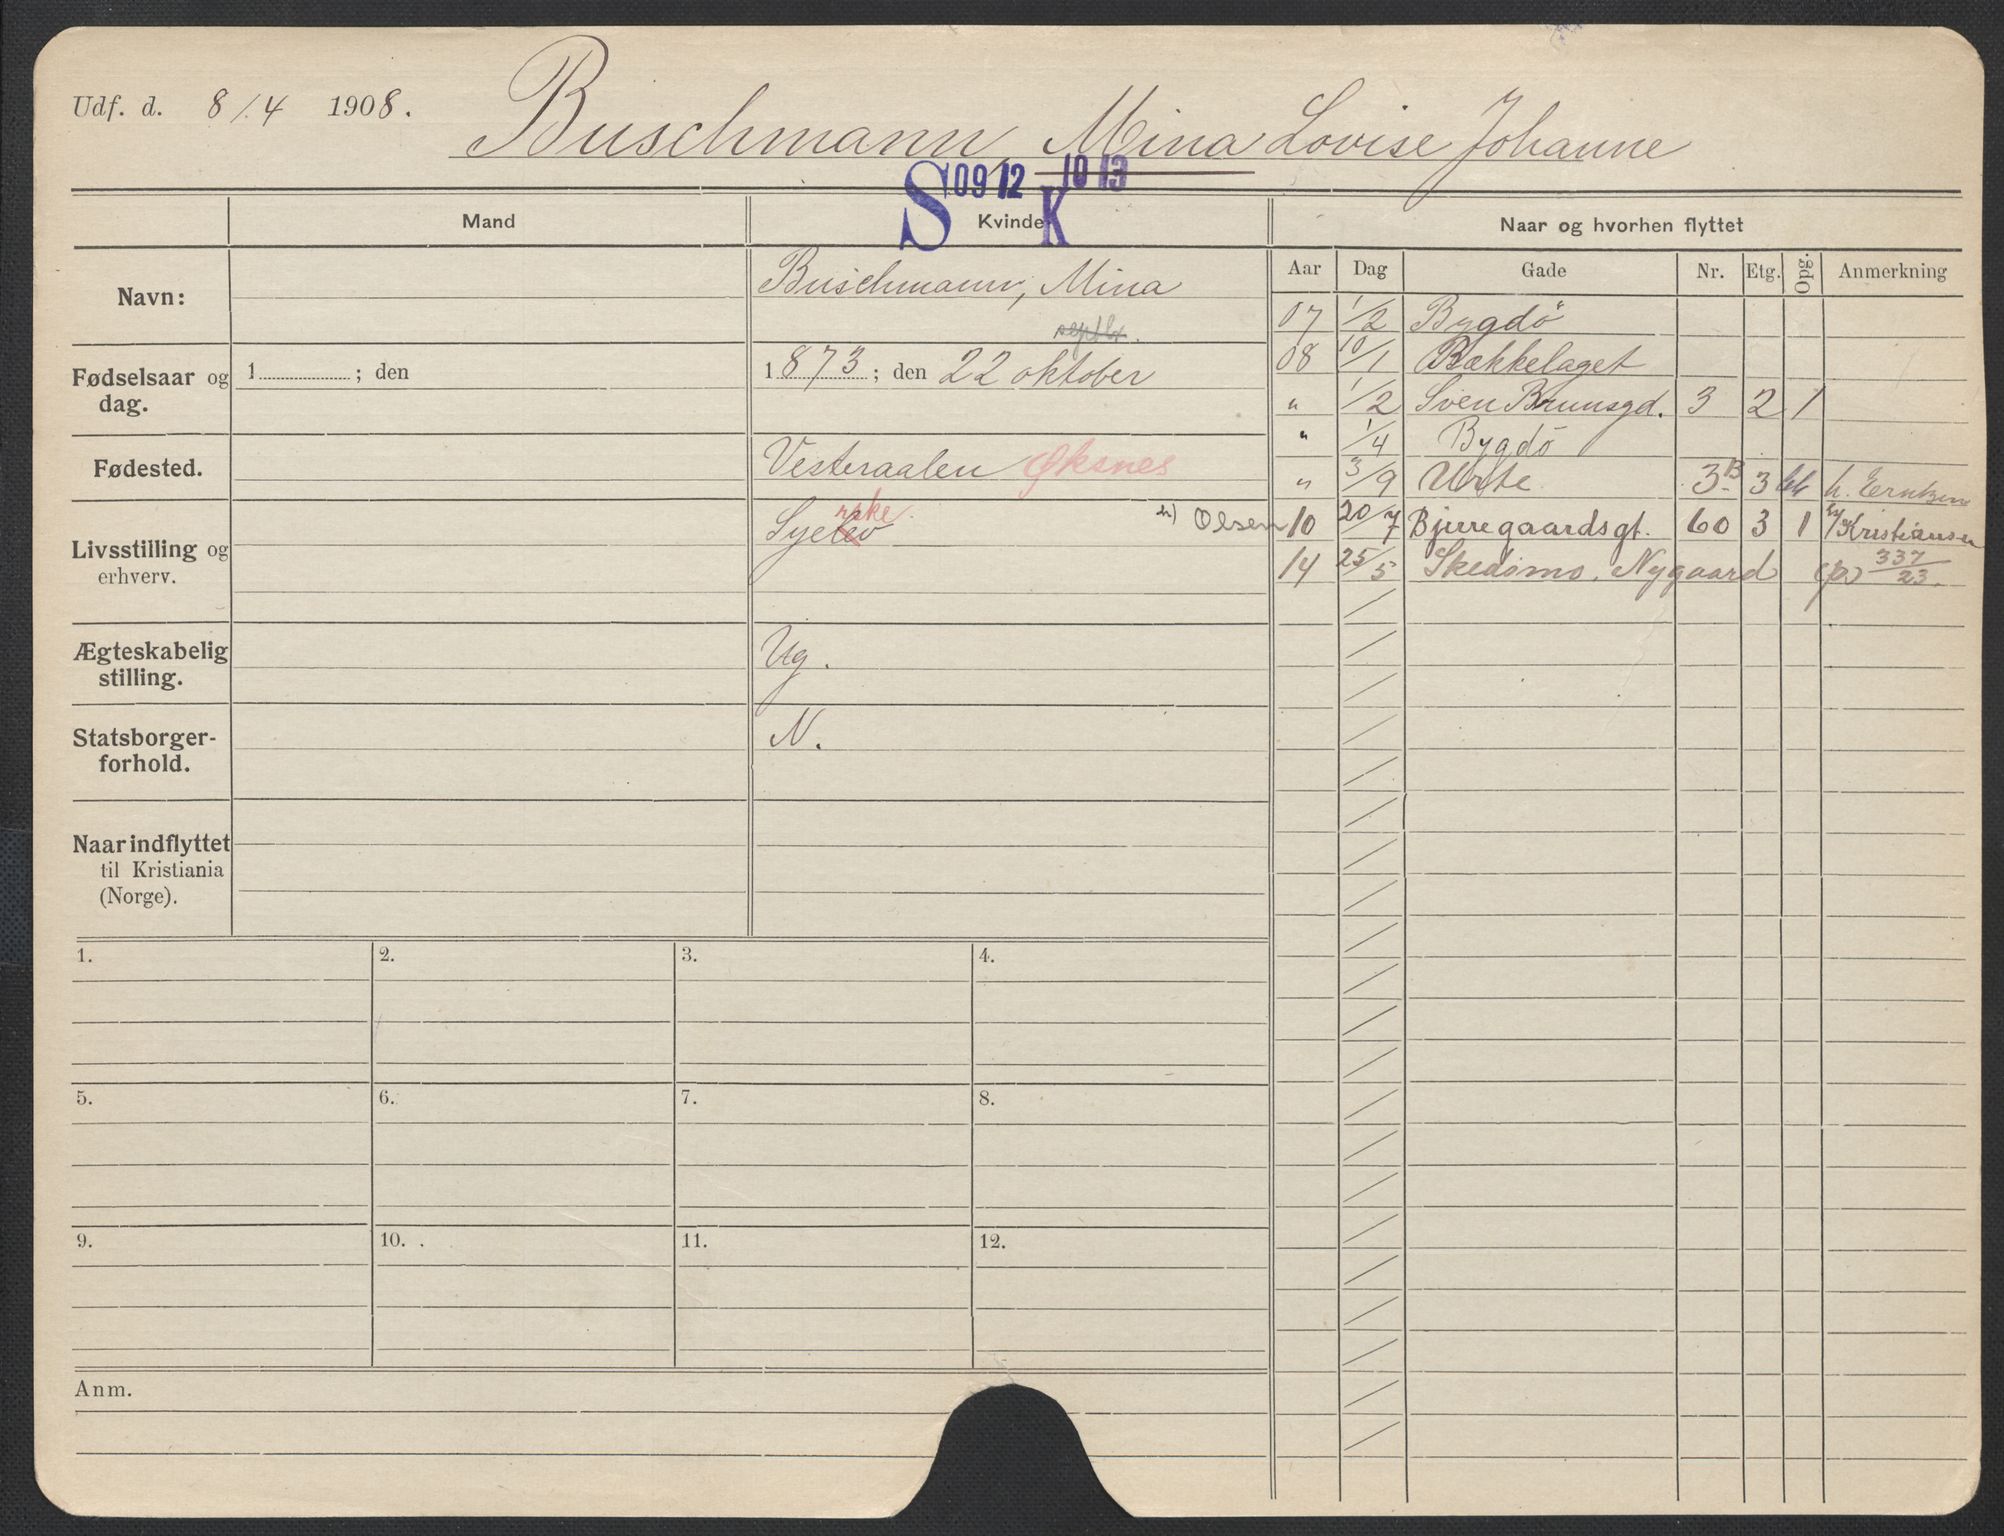 Udf. d. 8/4 1908. Buschmann, Mina Lovise Johanne
S 09 12 K 10 13
Mand Kvinde Naar og hvorhen flyttet
Aar Dag Gade Nr. Etg. Opg. Anmerkning
Navn: Buschmann, Mina
septbr.
Fødselsaar og dag. 1 ; den 1873; den 22 oktober
Fødested. Vesteraalen Øksnes
Livsstilling og erhverv. Syelev rske.
Ægteskabelig stilling. Ug.
Statsborgerforhold. N.
Naar indflyttet
til Kristiania
(Norge).
07 1/2 Bygdö
08 10/1 Bækkelaget
" 1/2 Sven Brunsgd. 3 2 1
" 1/4 Bygdö
" 3/9 Urte 3B 3 h.
h) Olsen 10 20/7 Bjuregaardsgt. 60 3 1 h/Kristiansen
14 25/5 Skedsmo, Nygaard (p) 337/23.
1. 2. 3. 4.
5. 6. 7. 8.
9. 10. 11. 12.
Anm.